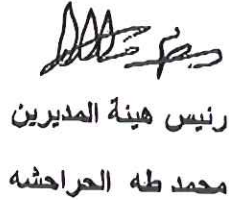 رئيس هيئة المديرين
محمد طه الحراحشه